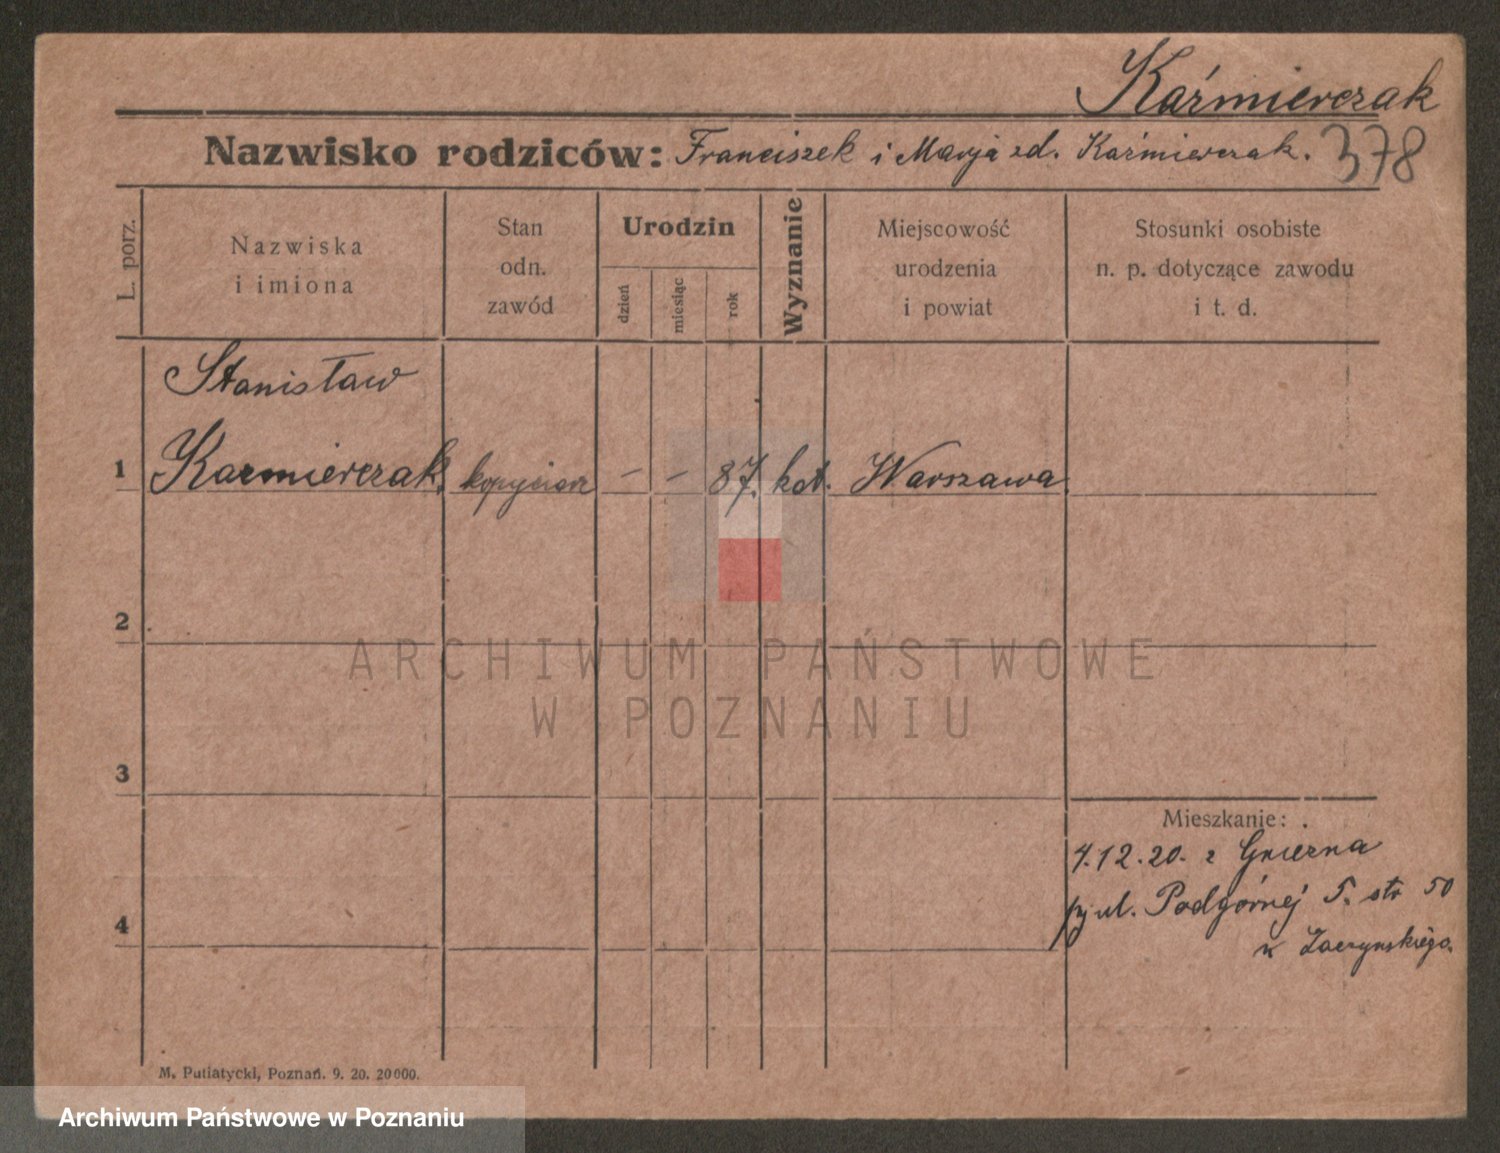 Kaźmierczak
Nazwisko rodziców: Franciszek i Marja zd. Kaźmierczak. 378
L. porz.
Nazwiska
i imiona
Stan
odn.
zawód
Urodzin
dzień
miesiąc
rok
Wyznanie
Miejscowość
urodzenia
i powiat
Stosunki osobiste
n. p. dotyczące zawodu
i t. d.
Stanisław
1 Kaźmierczak. kopyciarz - - 87. kat. Warszawa.
2
3
4
ARCHIWUM PAŃSTWOWE
W POZNANIU
Mieszkanie:
4.12.20. z Gniezna
ul. Podgórnej 5. str 50
M. Putiatycki, Poznań. 9. 20. 20000.
Archiwum Państwowe w Poznaniu